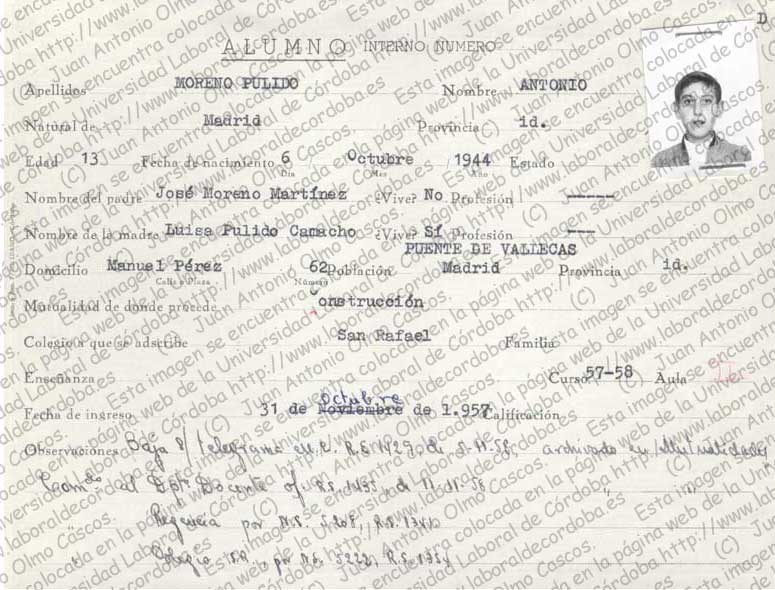 D
ALUMNO INTERNO NUMERO
Apellidos MORENO PULIDO Nombre ANTONIO
Natural de Madrid Provincia id.
Edad 13 Fecha de nacimiento 6 Octubre 1944 Estado
Día Mes Año
Nombre del padre José Moreno Martínez ¿Vive? No Profesión -----
Nombre de la madre Luisa Pulido Camacho ¿Vive? Sí Profesión ---
PUENTE DE VALLECAS
Domicilio Manuel Pérez 62 Población Madrid Provincia id.
Calle o Plaza Número
Mutualidad de donde procede Construcción
Colegio a que se adscribe San Rafael Familia
Enseñanza Curso 57-58 Aula
Octubre
Fecha de ingreso 31 de Noviembre de 1.957 Calificación
Observaciones Baja telegrama R.S. 1429 de 5-11-58, archivado en Mutualidades
al Docente of. R.S. 1435 de 11-11-58
Regencia por N.S. 5208, R.S. 1341
Colegio S.R., por N.S. 5222, R.S. 1354
Esta imagen se encuentra colocada en la página web de la Universidad Laboral de Córdoba http://www.laboraldecordoba.es (C) Juan Antonio Olmo Cascos.